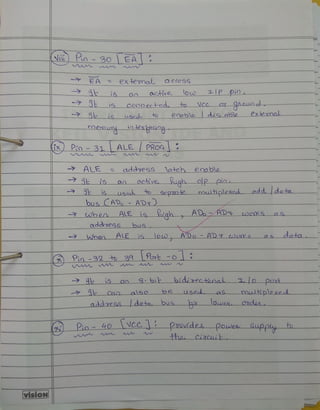 viii) Pin - 30 [EA̅] :
→ EA̅ = external access
→ It is an active low I/P pin.
→ It is connected to Vcc or ground.
→ It is used to enable / disable external
memory interfacing.
ix) Pin - 31 [ALE / PROG] :
→ ALE = address latch enable
→ It is an active high O/P pin.
→ It is used to separate multiplexed add / data
bus (AD0 - AD7)
→ When ALE is high, AD0 - AD7 works as
address bus
→ When ALE is low, AD0 - AD7 works as data.
x) Pin - 32 to 39 [Port - 0] :
→ It is an 8-bit bidirectional I/O port
→ It can also be used as multiplexed
address / data bus for lower order.
xi) Pin - 40 [VCC] : provides power supply to
the circuit.
VISION